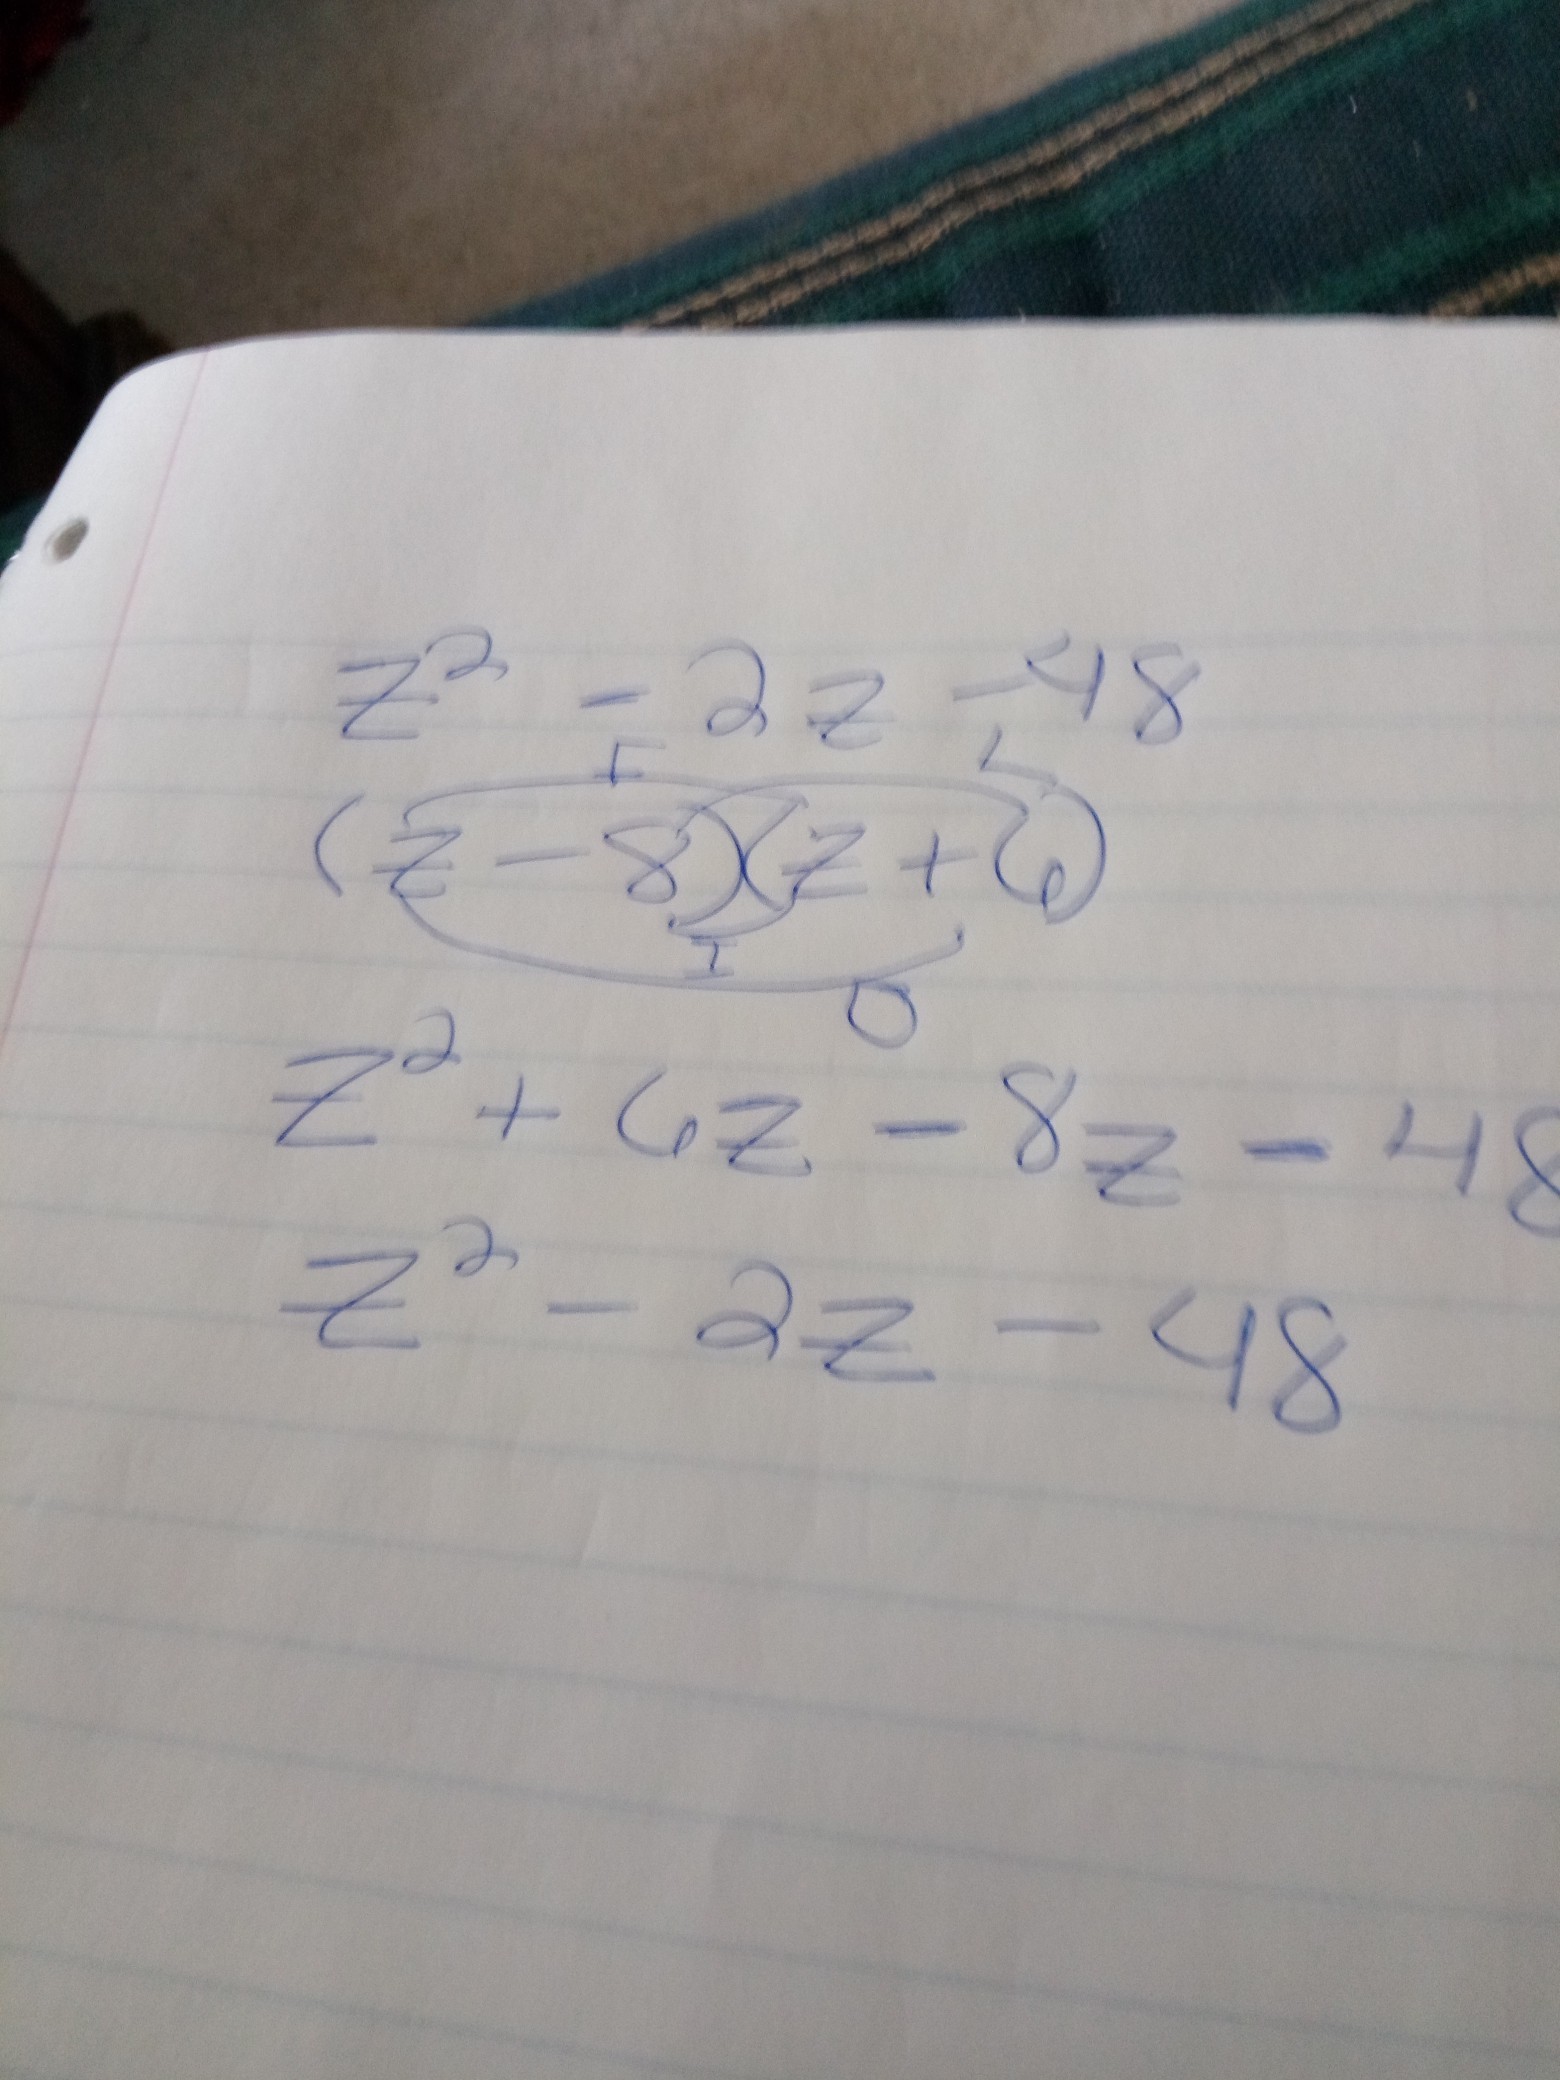 z² - 2z - 48
F L
(z - 8)(z + 6)
I
O
z² + 6z - 8z - 48
z² - 2z - 48